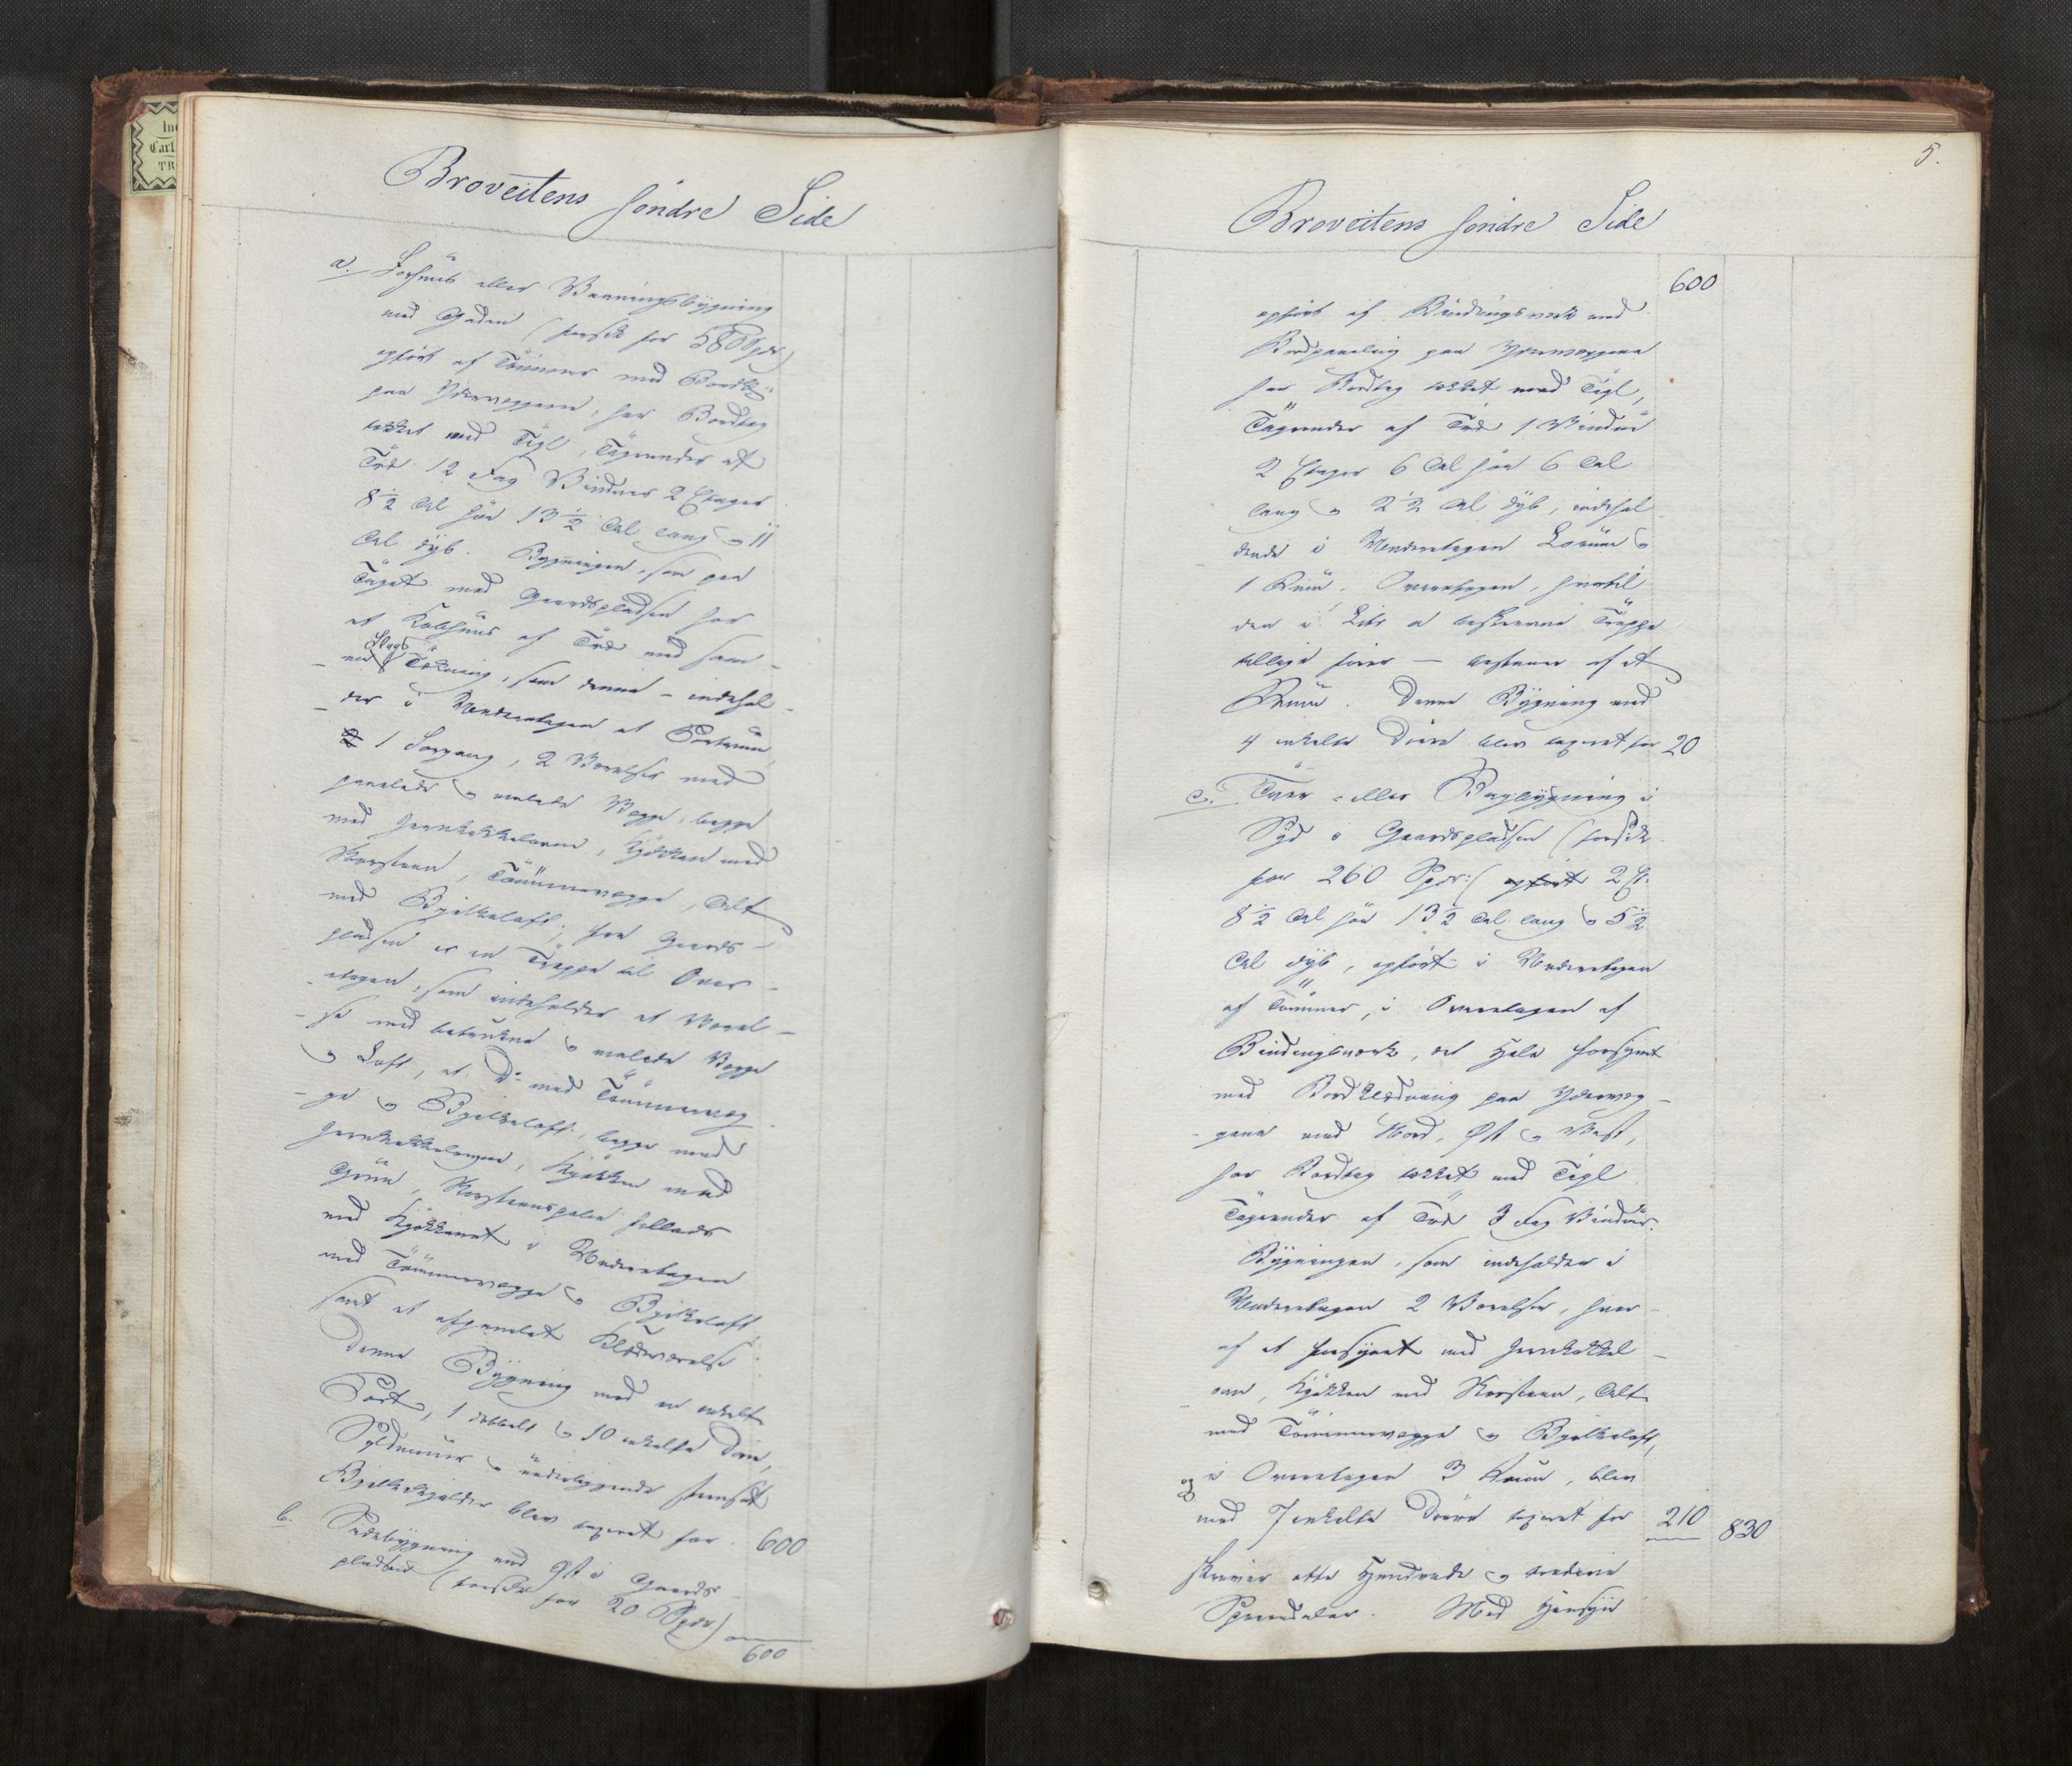 Broveitens søndre Side
a. Forhuus eller Vaaningsbygning
mod Gaden (forsik for 580 Spdr)
opført af Tømmer med Bordkl:
paa Ydervæggene, har Bordtag
tækket med Tegl, Tagrender af
Træ 12 Fag Vinduer 2 Etager
8½ Al høi 13½ Al lang og 11
Al dyb. Bygningen, som paa
Taget mod Gaardspladsen har
et Kobhuus af Træ med sam-
me Slags Tækning, som denne - indehol-
der i Underetagen et Portrum,
1 Forgang, 2 Værelser med
panelede og malede Vægge, begge
med Jernkakkelovne, Kjøkken med
Skorsteen, Tømmervægge, Alt
med Bjelkeloft; fra Gaards-
pladsen er en Trappe til Over-
etagen, som indeholder et Værel-
se med betrukne og malede Vægge
og Loft, et Do med Tømmervæg-
ge og Bjelkeloft, begge med
Jernkakkelovne, Kjøkken med
Gruu, Skorsteenspibe fælleds
med Kjøkkenet i Underetagen
med Tømmervægge og Bjelkeloft,
samt et afpanelet Klædeværelse
Denne Bygning med en enkelt
Port, 1 dobbelt og 10 enkelte Døre,
Syldmuur og underliggende steensat
Bjelkekjelder blev taxeret for 600
b. Sidebygning mod Øst i Gaards-
pladsen (forsikr for 20 Spdr)
600
5.
Broveitens søndre Side
600
opført af Bindingsværk med
Bordpaneling paa Ydervæggene
har Bordtag tækket med Tegl,
Tagrender af Træ 1 Vindue
2 Etager 6 Al høi 6 Al
lang og 2½ Al dyb, indehol-
dende i Underetagen Locum og
1 Rum. Overetagen, hvortil
den i Litr a beskrevne Trappe
tillige fører — bestaaer af et
Rum. Denne Bygning med
4 enkelte Døre blev taxeret for 20
c. Tver- eller Bagbygning i
Syd i Gaardspladsen (forsik
for 260 Spdr:( opført 2 Et.
8½ Al høi 13½ Al lang og 5½
Al dyb, opført i Underetagen
af Tømmer, i Overetagen af
Bindingsværk, det Hele forsynet
med Bordklædning paa Ydervæg-
gene mod Nord, Øst og Vest,
har Bordtag tækket med Tegl
Tagrender af Træ 3 Fag Vinduer.
Bygningen, som indeholder i
Underetagen 2 Værelser, hvor-
af et forsynet med Jernkakkel-
ovn, Kjøkken med Skorsteen, Alt
med Tømmervægge og Bjelkeloft,
og i Overetagen 3 Rum, blev
med 7 enkelte Døre taxeret for 210 830
skriver otte Hundrede og tredive
Speciedaler. Med Hensyn